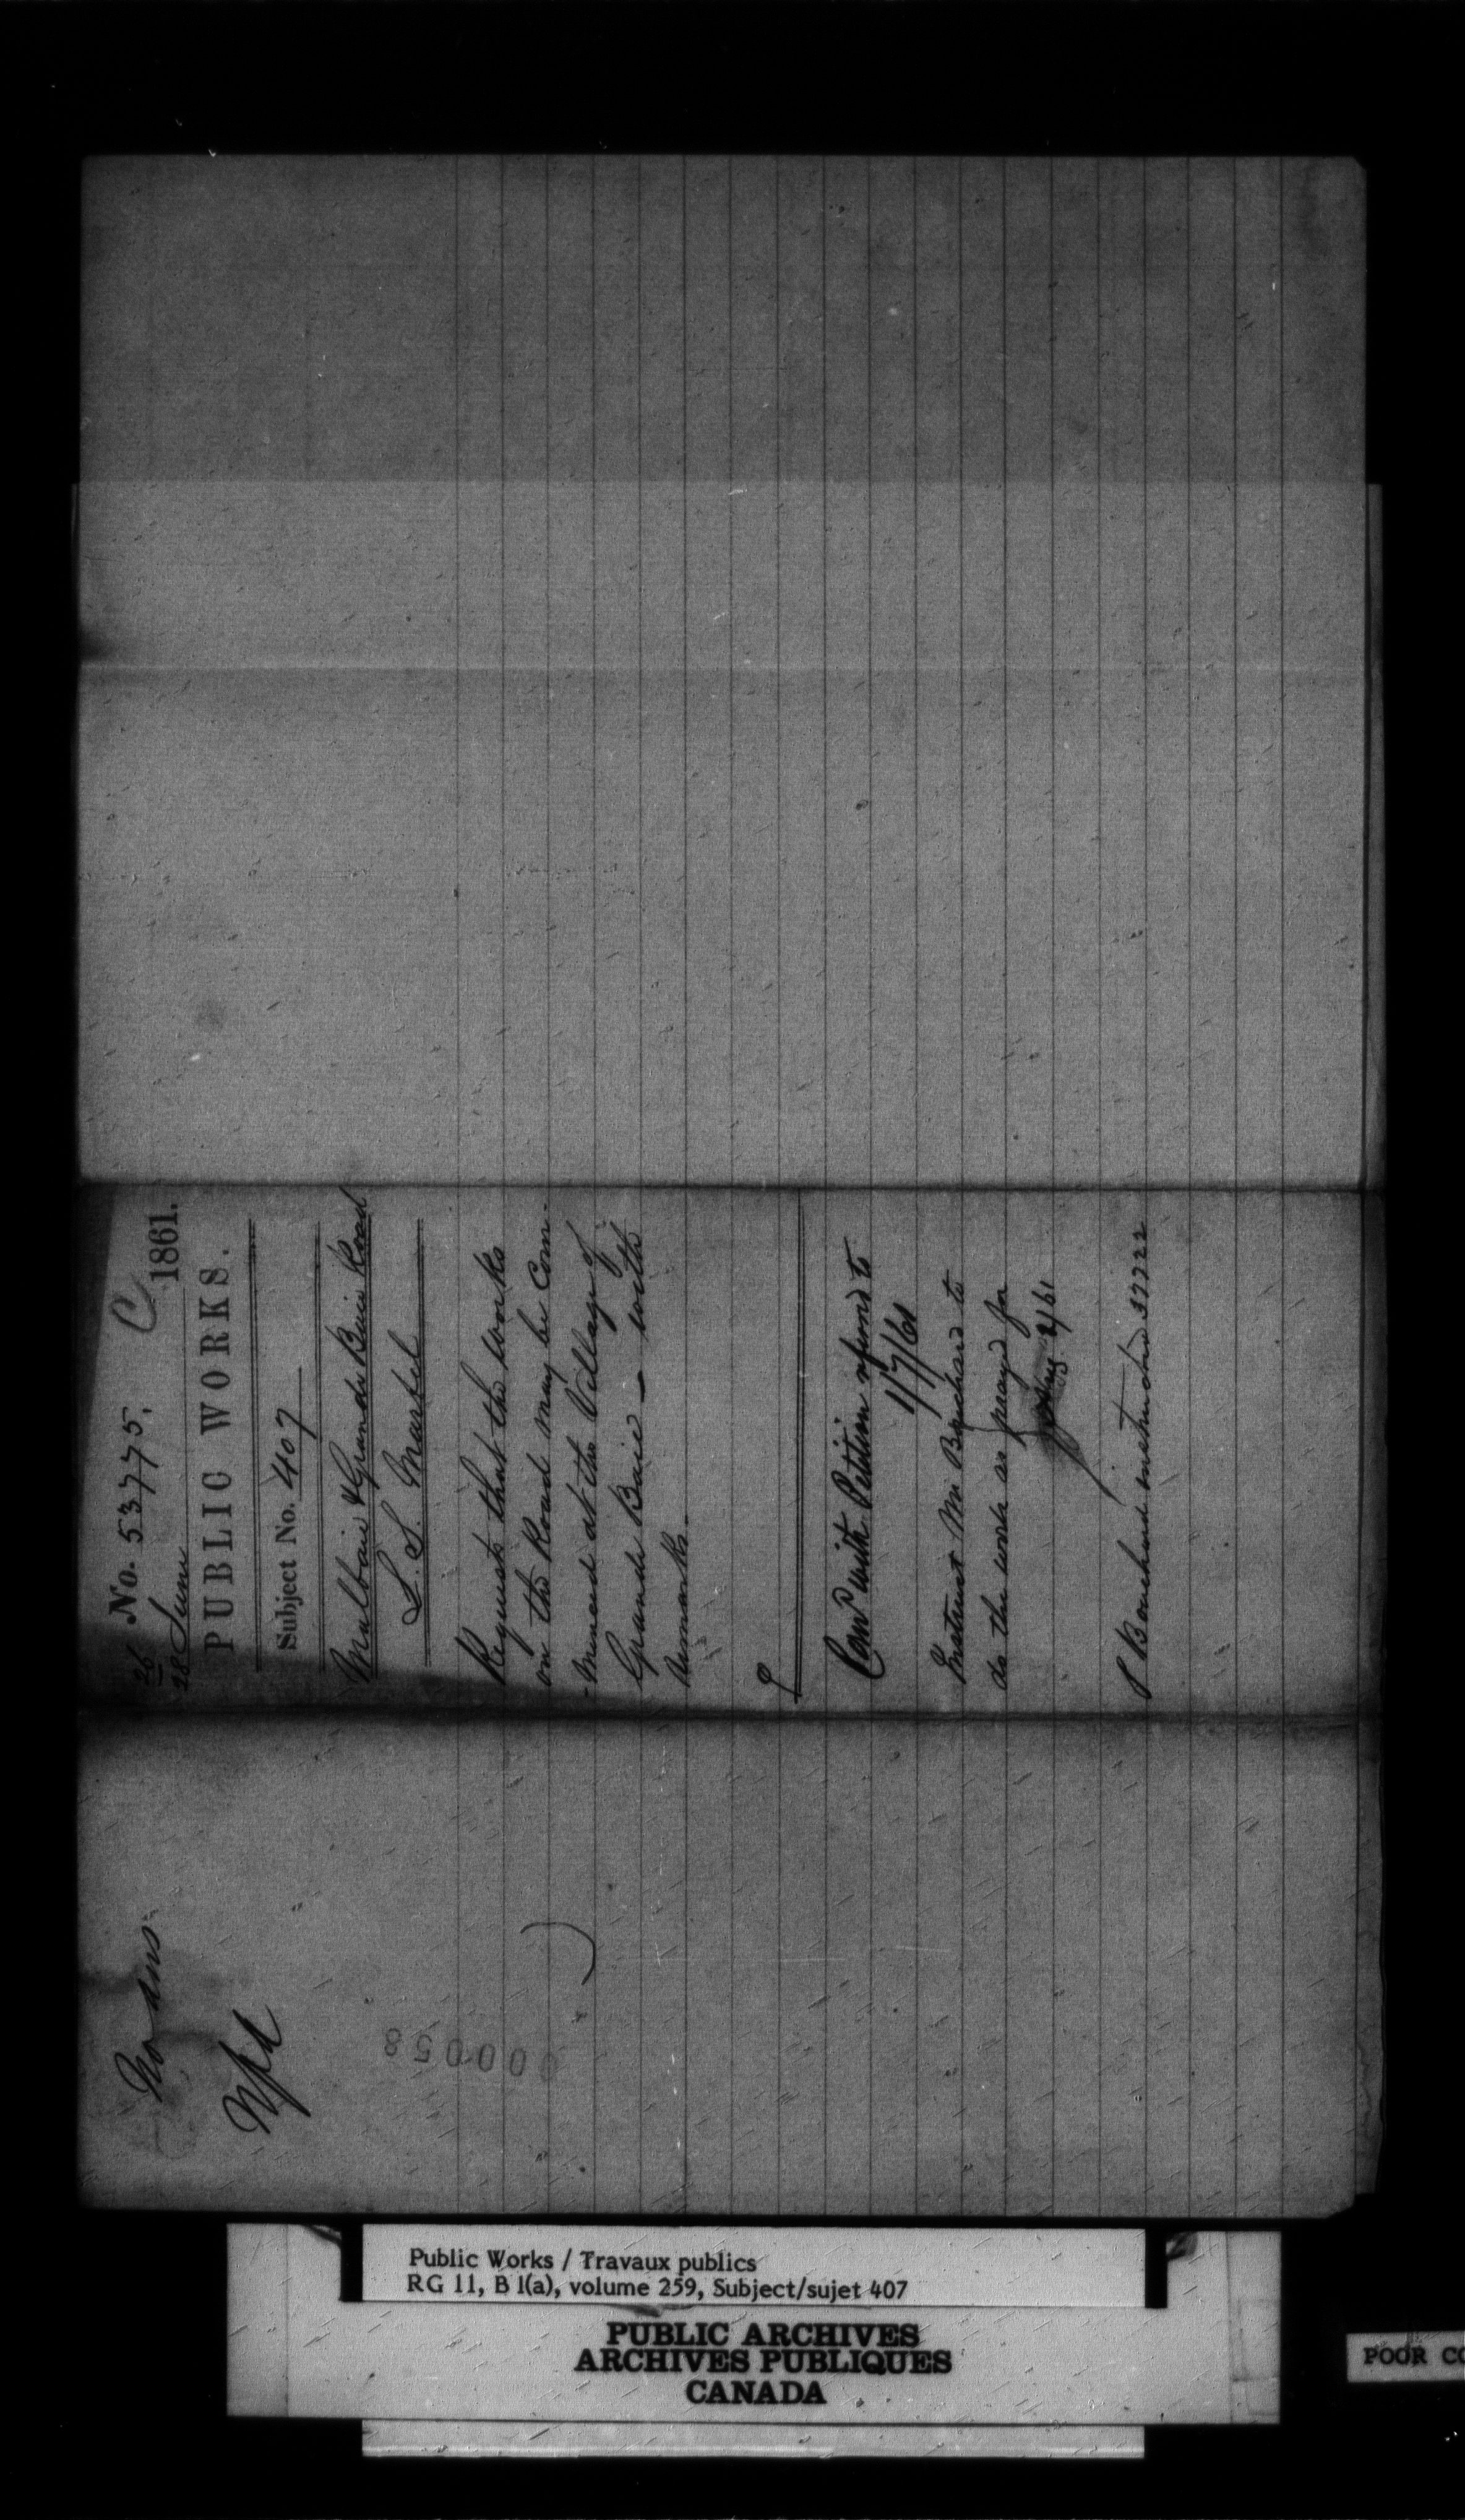 No. 53775. C
26
28 June 1861.
PUBLIC WORKS.
Subject No. 407
Malbaie & Grande Baie Road
L. S. Martel
Requests that the works
on the Road may be com-
-menced at the Village of
Grande Baie — with
remarks.
Com^r with Petition referred to
11/7/61
Instruct Mr Bouchard to
do the work as prayed for
Aug 2/61
P Bouchard instructed 37722
No ans
000058
Public Works / Travaux publics
RG 11, B 1(a), volume 259, Subject/sujet 407
PUBLIC ARCHIVES
ARCHIVES PUBLIQUES
CANADA
POOR CO